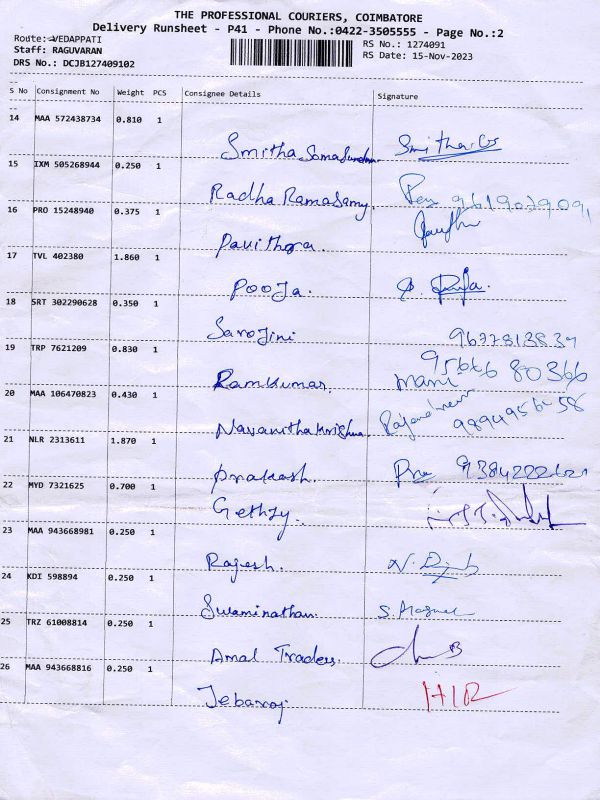 THE PROFESSIONAL COURIERS, COIMBATORE
Delivery Runsheet - P41 - Phone No.:0422-3505555 - Page No.:2
Route: VEDAPPATI
RS No.: 1274091
Staff: RAGUVARAN
RS Date: 15-Nov-2023
DRS No.: DCJB127409102
S No Consignment No Weight PCS Consignee Details Signature
14 MAA 572438734 0.810 1
Smitha Somasundram
15 IXM 505268944 0.250 1
Radha Ramasamy. 9619079091
16 PRO 15248940 0.375 1
Pavithra
17 TVL 402380 1.860 1
Pooja.
18 SRT 302290628 0.350 1
Sarojini
19 TRP 7621209 0.830 1
Ramkumar. mani 95666 80366
20 MAA 106470823 0.430 1
Navanithakrishna. 9894956458
21 NLR 2313611 1.870 1
prakash.
22 MYD 7321625 0.700 1
Gethsy.
23 MAA 943668981 0.250 1
Rajesh.
24 KDI 598894 0.250 1
Swaminathan.
25 TRZ 61008814 0.250 1
Amal Traders.
26 MAA 943668816 0.250 1
Jebaraj